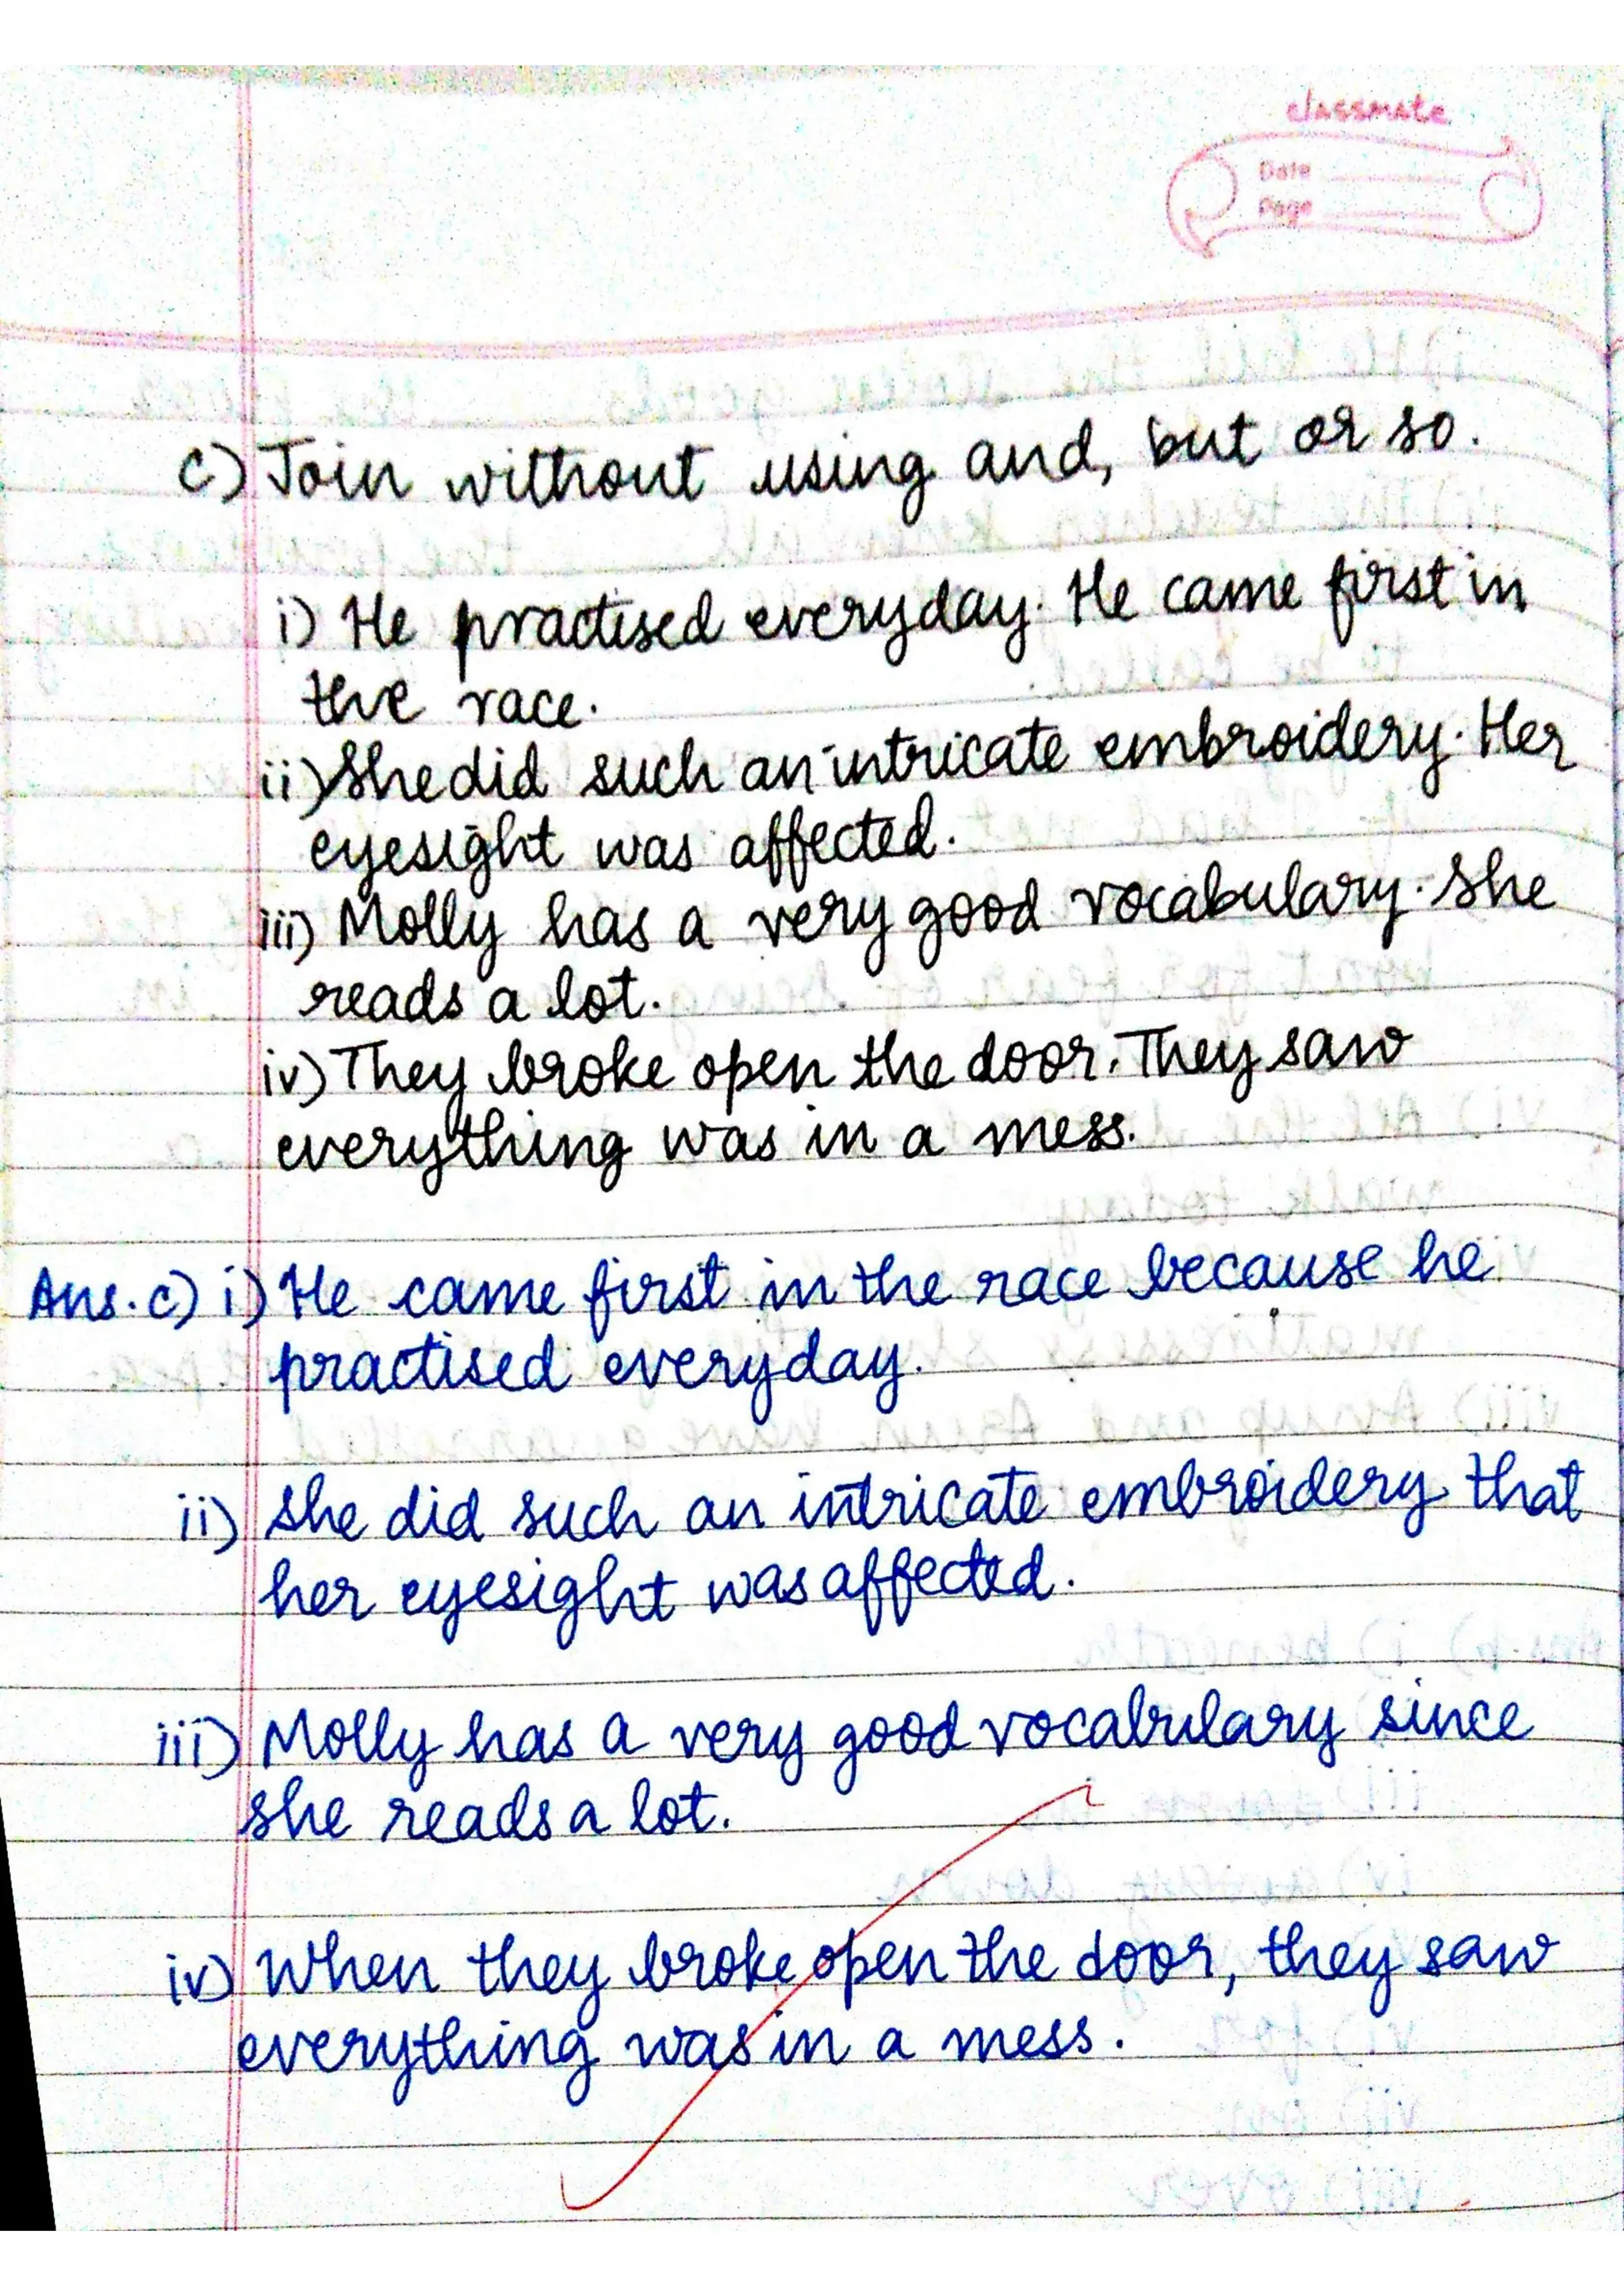 classmate
Date
Page
c) Join without using and, but or so.
i) He practised everyday. He came first in
the race.
ii) She did such an intricate embroidery. Her
eyesight was affected.
iii) Molly has a very good vocabulary. She
reads a lot.
iv) They broke open the door. They saw
everything was in a mess.
Ans. c) i) He came first in the race because he
practised everyday.
ii) She did such an intricate embroidery that
her eyesight was affected.
iii) Molly has a very good vocabulary since
she reads a lot.
iv) When they broke open the door, they saw
everything was in a mess.